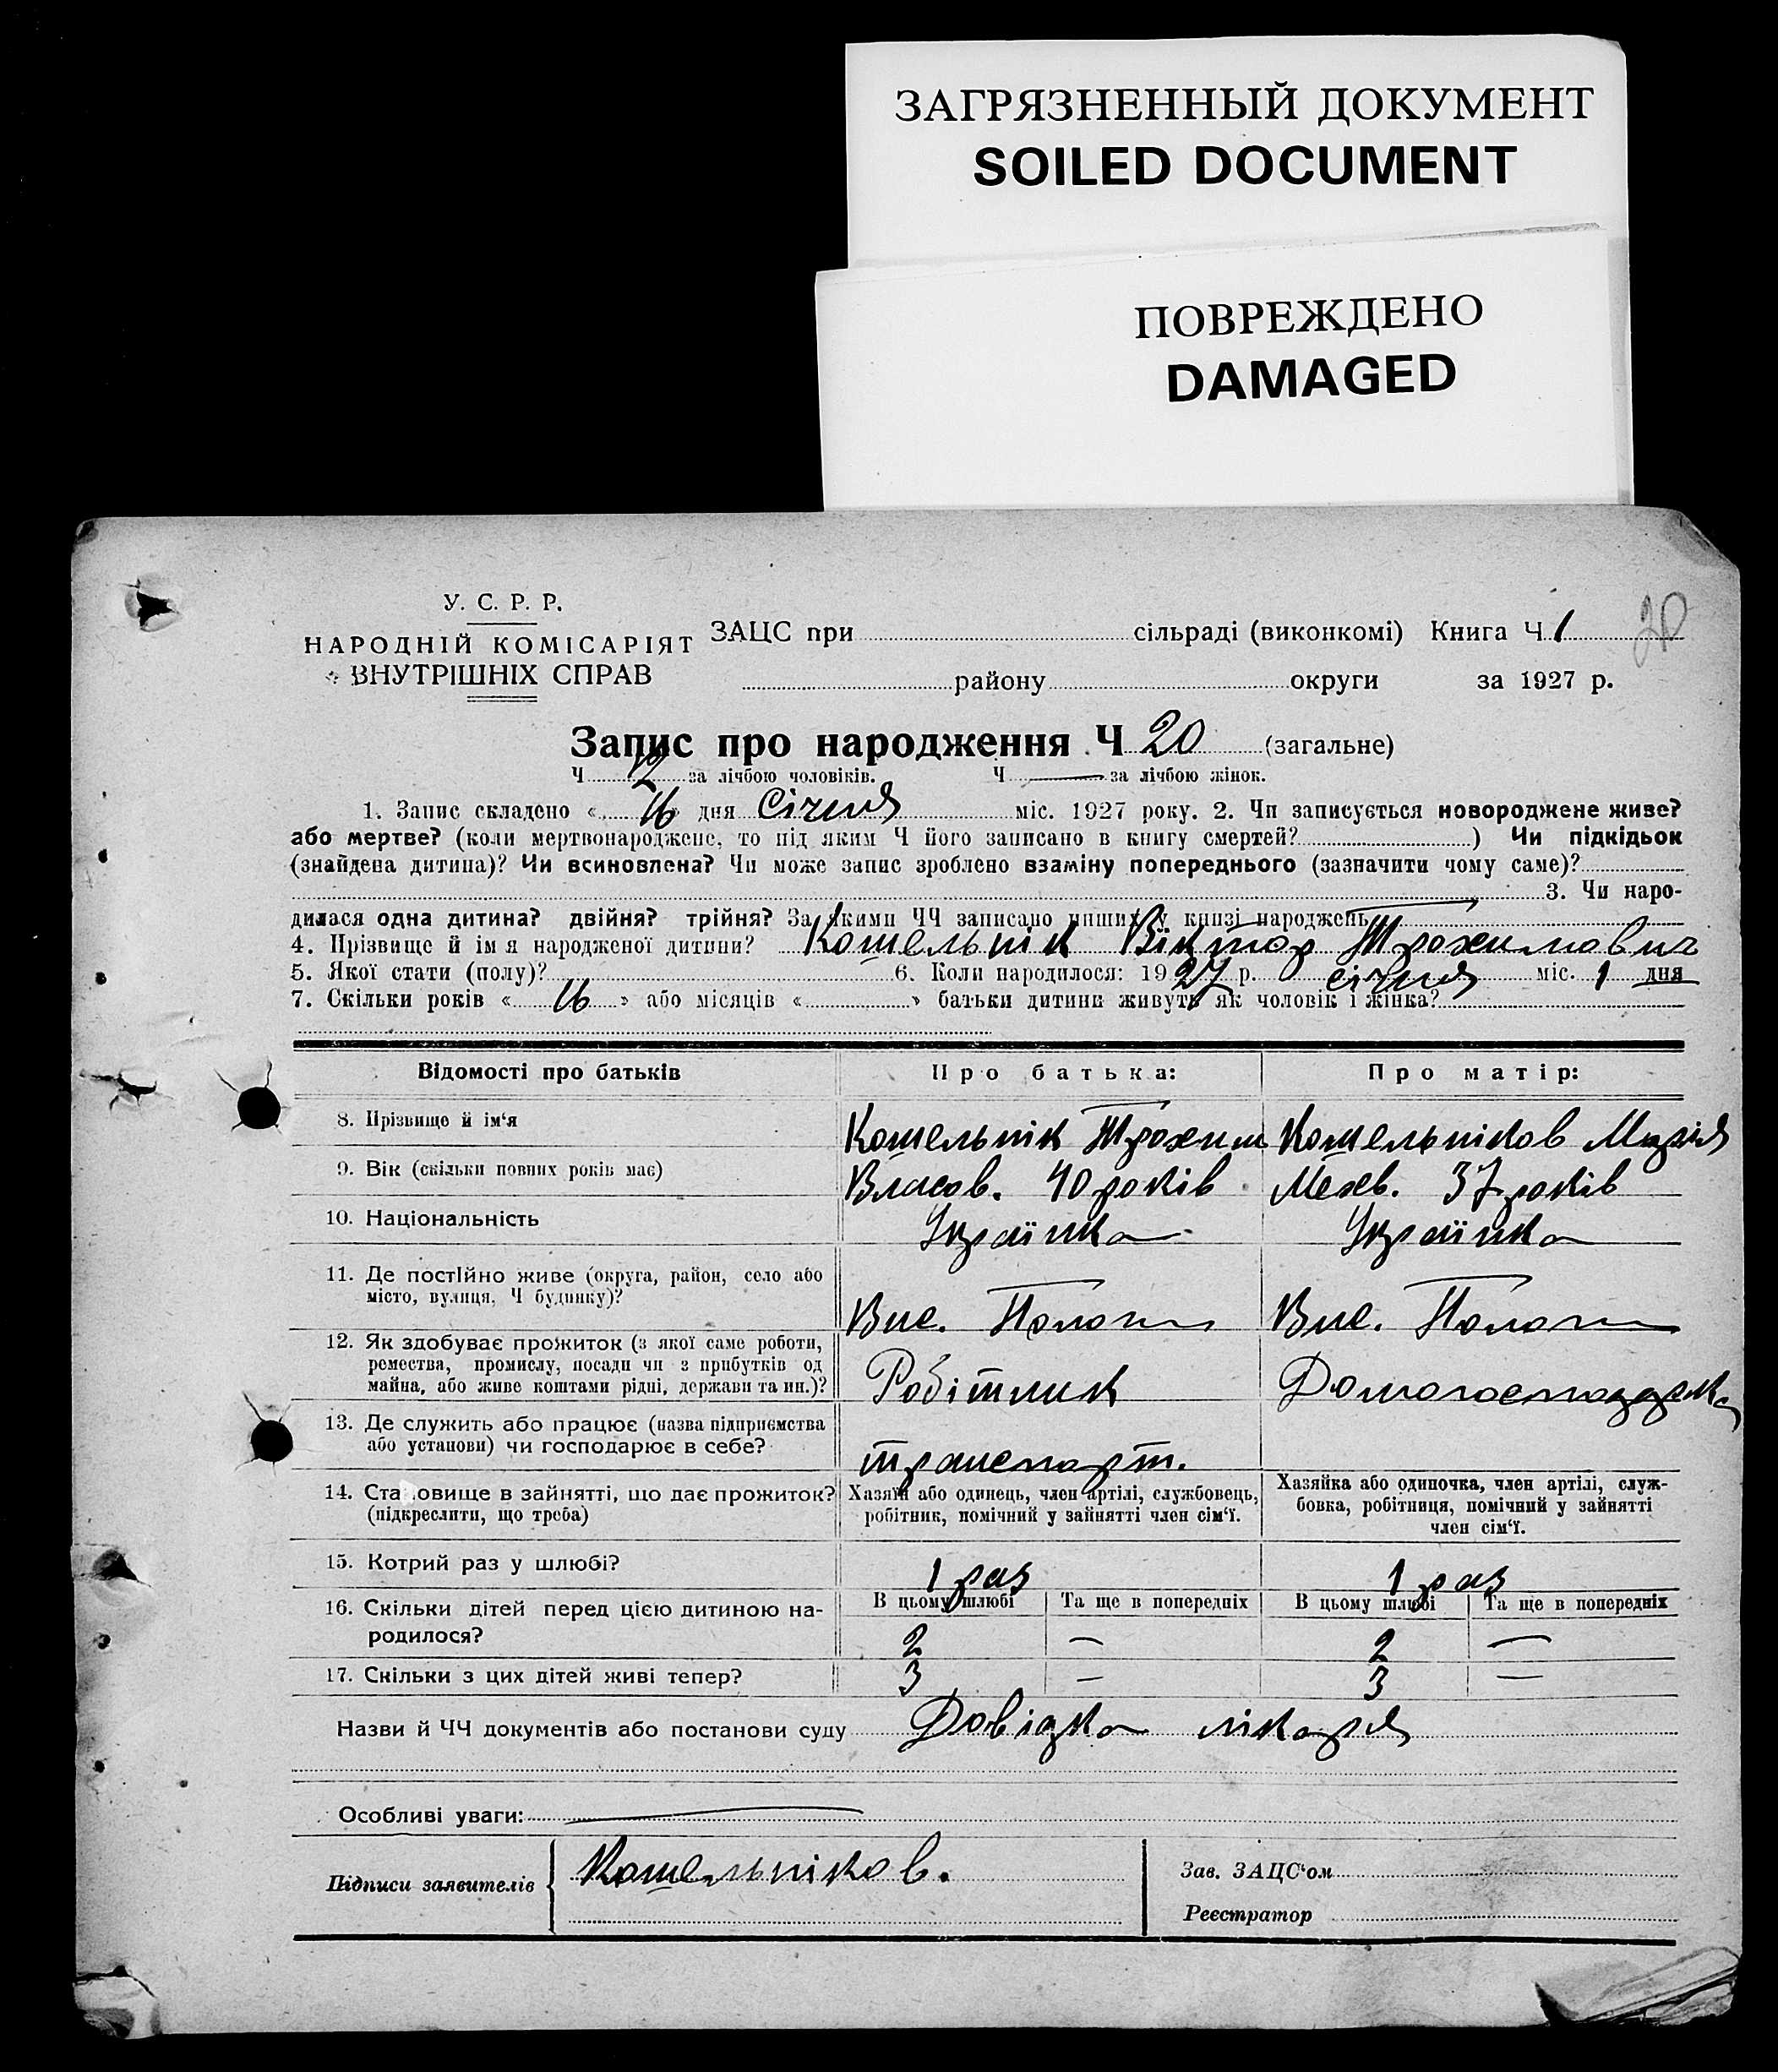 ЗАГРЯЗНЕННЫЙ ДОКУМЕНТ
SOILED DOCUMENT
ПОВРЕЖДЕНО
DAMAGED
20
У. С. Р. Р.
НАРОДНІЙ КОМІСАРІЯТ
ВНУТРІШНІХ СПРАВ
ЗАЦС при сільраді (виконкомі) Книга Ч 1
району округи за 1927 р.
Запис про народження Ч 20 (загальне)
Ч 12 за лічбою чоловіків. Ч — за лічбою жінок.
1. Запис складено « 16 » дня Січня міс. 1927 року. 2. Чи записується новороджене живе?
або мертве? (коли мертвонароджене, то під яким Ч його записано в книгу смертей? ) Чи підкідьок
(знайдена дитина)? Чи всиновлена? Чи може запис зроблено взаміну попереднього (зазначити чому саме)?
3. Чи наро-
дилася одна дитина? двійня? трійня? За якими ЧЧ записано инших у книзі народжень
4. Прізвище й ім я народженої дитини? Котельнік Віктор Трохимович
5. Якої стати (полу)? 6. Коли народилося: 1927 р. січня міс. 1 дня
7. Скільки років « 16 » або місяців « » батьки дитини живуть як чоловік і жінка?
Відомості про батьків
Про батька:
Про матір:
8. Прізвище й ім‘я
Котельнік Трохим
Котельніков Марія
9. Вік (скільки повних років має)
Власов. 40 років
37 років
10. Національність
Українка
Українка
11. Де постійно живе (округа, район, село або
місто, вулиця, Ч будинку)?
Вис. Пологи
Вис. Пологи
12. Як здобуває прожиток (з якої саме роботи,
ремества, промислу, посади чи з прибутків од
майна, або живе коштами рідні, держави та ин.)?
Робітник
Домогосподарка
13. Де служить або працює (назва підприємства
або установи) чи господарює в себе?
транспорт.
14. Становище в зайнятті, що дає прожиток?
(підкреслити, що треба)
Хазяїн або одинець, член артілі, службовець,
робітник, помічний у зайнятті член сім‘ї.
Хазяйка або одиночка, член артілі, служ-
бовка, робітниця, помічний у зайнятті
член сім‘ї.
15. Котрий раз у шлюбі?
1 раз
1 раз
16. Скільки дітей перед цією дитиною на-
родилося?
В цьому шлюбі
Та ще в попередніх
В цьому шлюбі
Та ще в попередніх
2 — 2 —
17. Скільки з цих дітей живі тепер?
3 — 3 —
Назви й ЧЧ документів або постанови суду Довідка лікаря
Особливі уваги:
Підписи заявителів
Котельніков.
Зав. ЗАЦС‘ом
Реєстратор